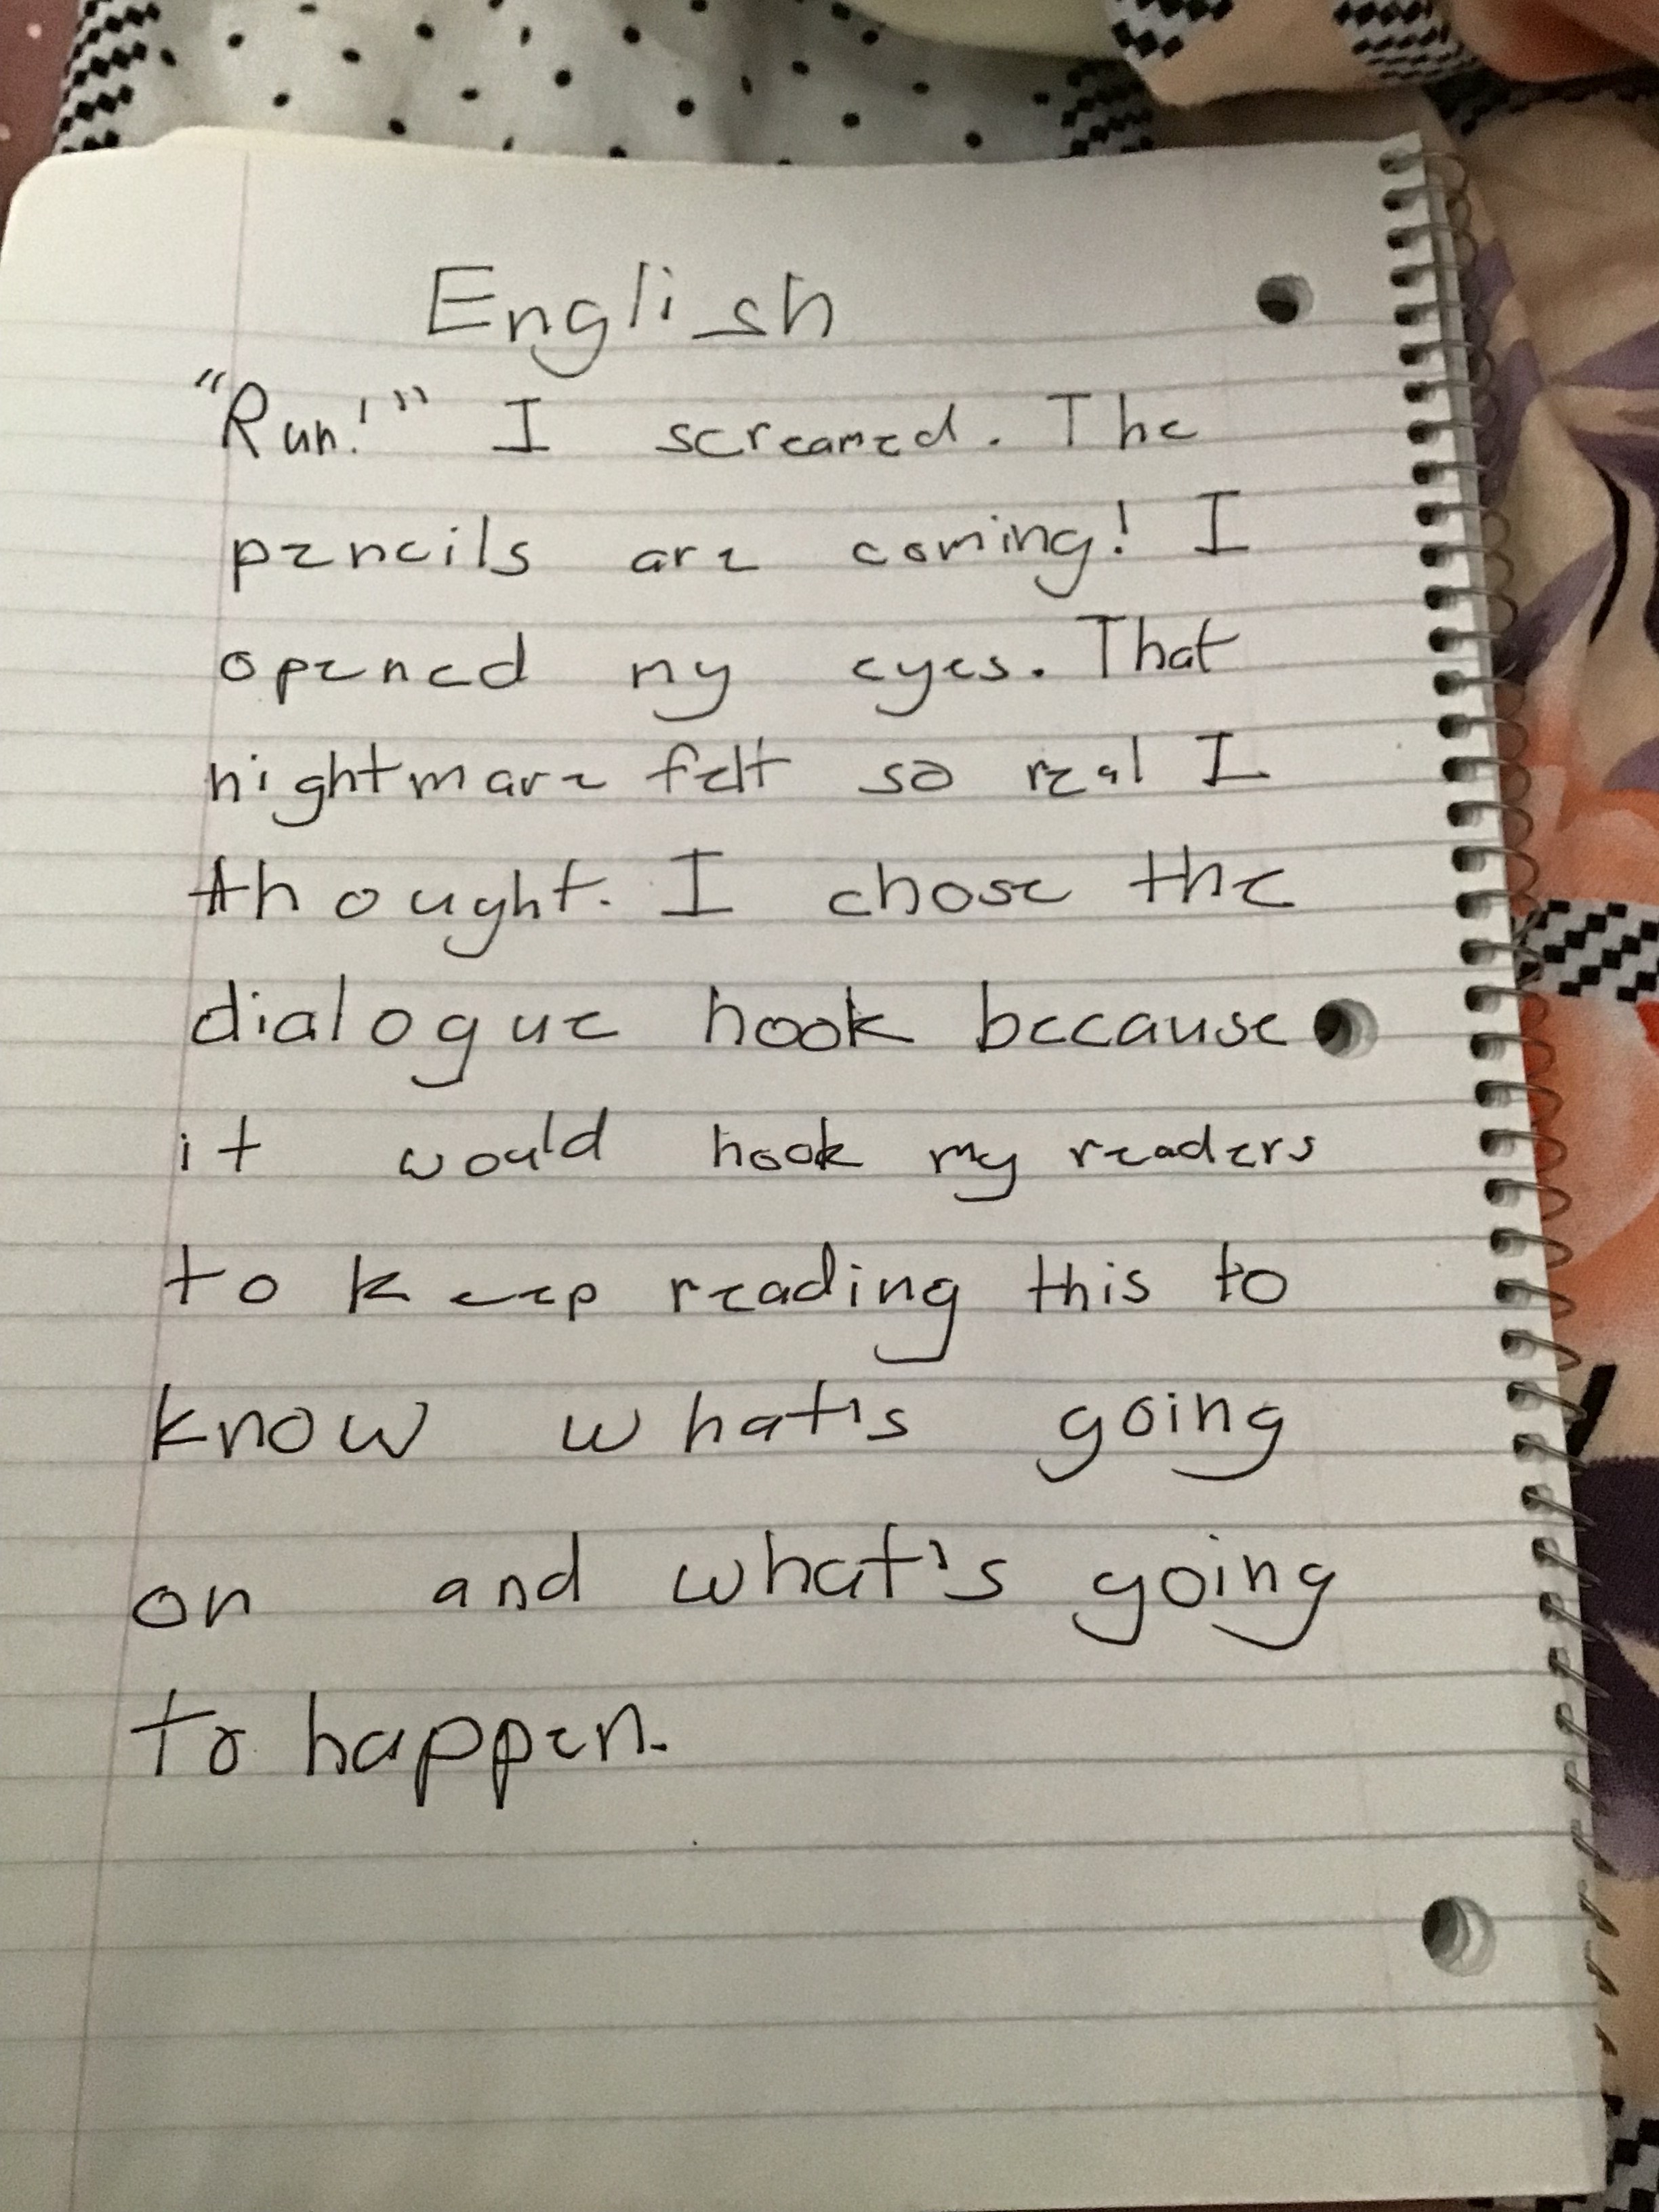 English
"Run!" I screamed. The
pencils are coming! I
opened my eyes. That
nightmare felt so real I
thought. I chose the
dialogue hook because
it would hook my readers
to keep reading this to
know what's going
on and what's going
to happen.